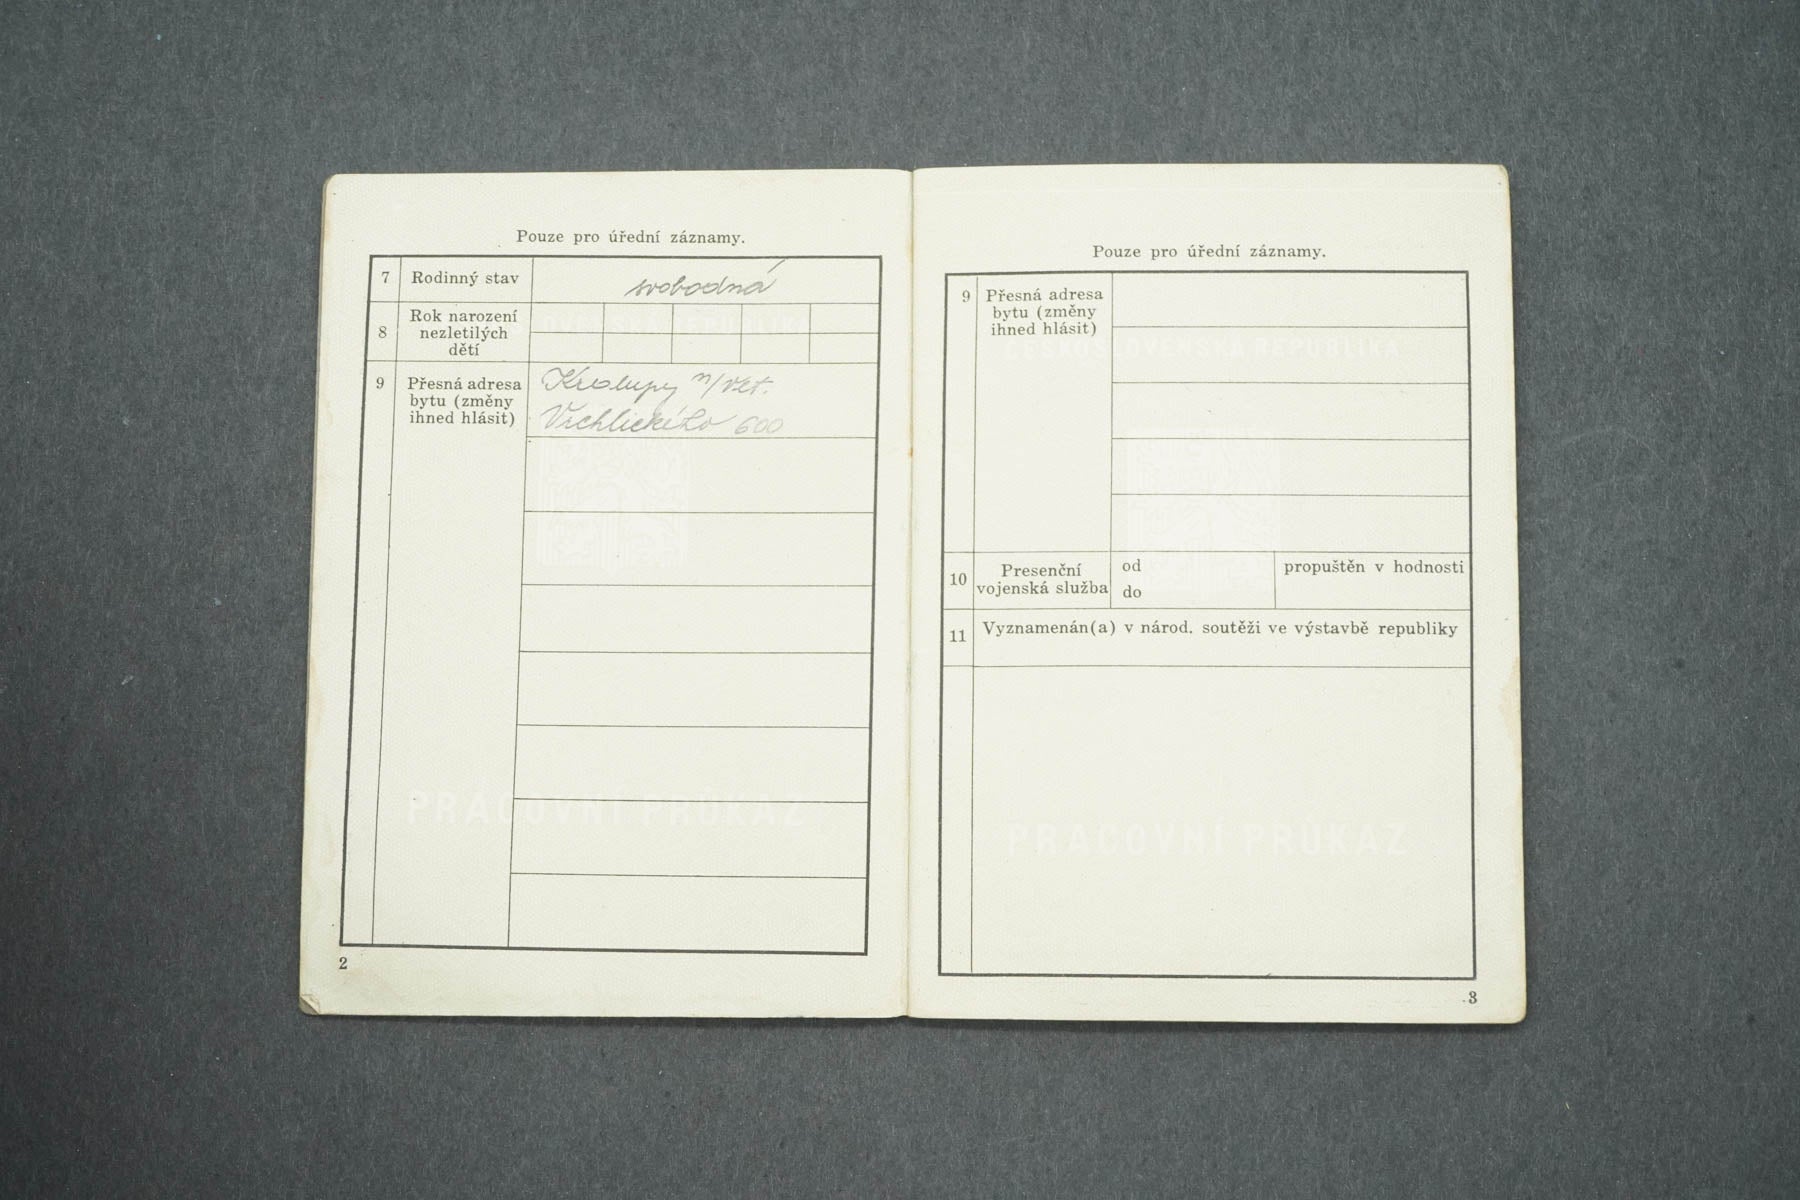 Pouze pro úřední záznamy.
7 Rodinný stav svobodná
8 Rok narození
nezletilých
dětí
9 Přesná adresa
bytu (změny
ihned hlásit)
Kralupy n/Vlt.
Vrchlického 600
PRACOVNÍ PRŮKAZ
2
Pouze pro úřední záznamy.
9 Přesná adresa
bytu (změny
ihned hlásit)
ČESKOSLOVENSKÁ REPUBLIKA
10 Presenční
vojenská služba
od
do
propuštěn v hodnosti
11 Vyznamenán(a) v národ. soutěži ve výstavbě republiky
PRACOVNÍ PRŮKAZ
3